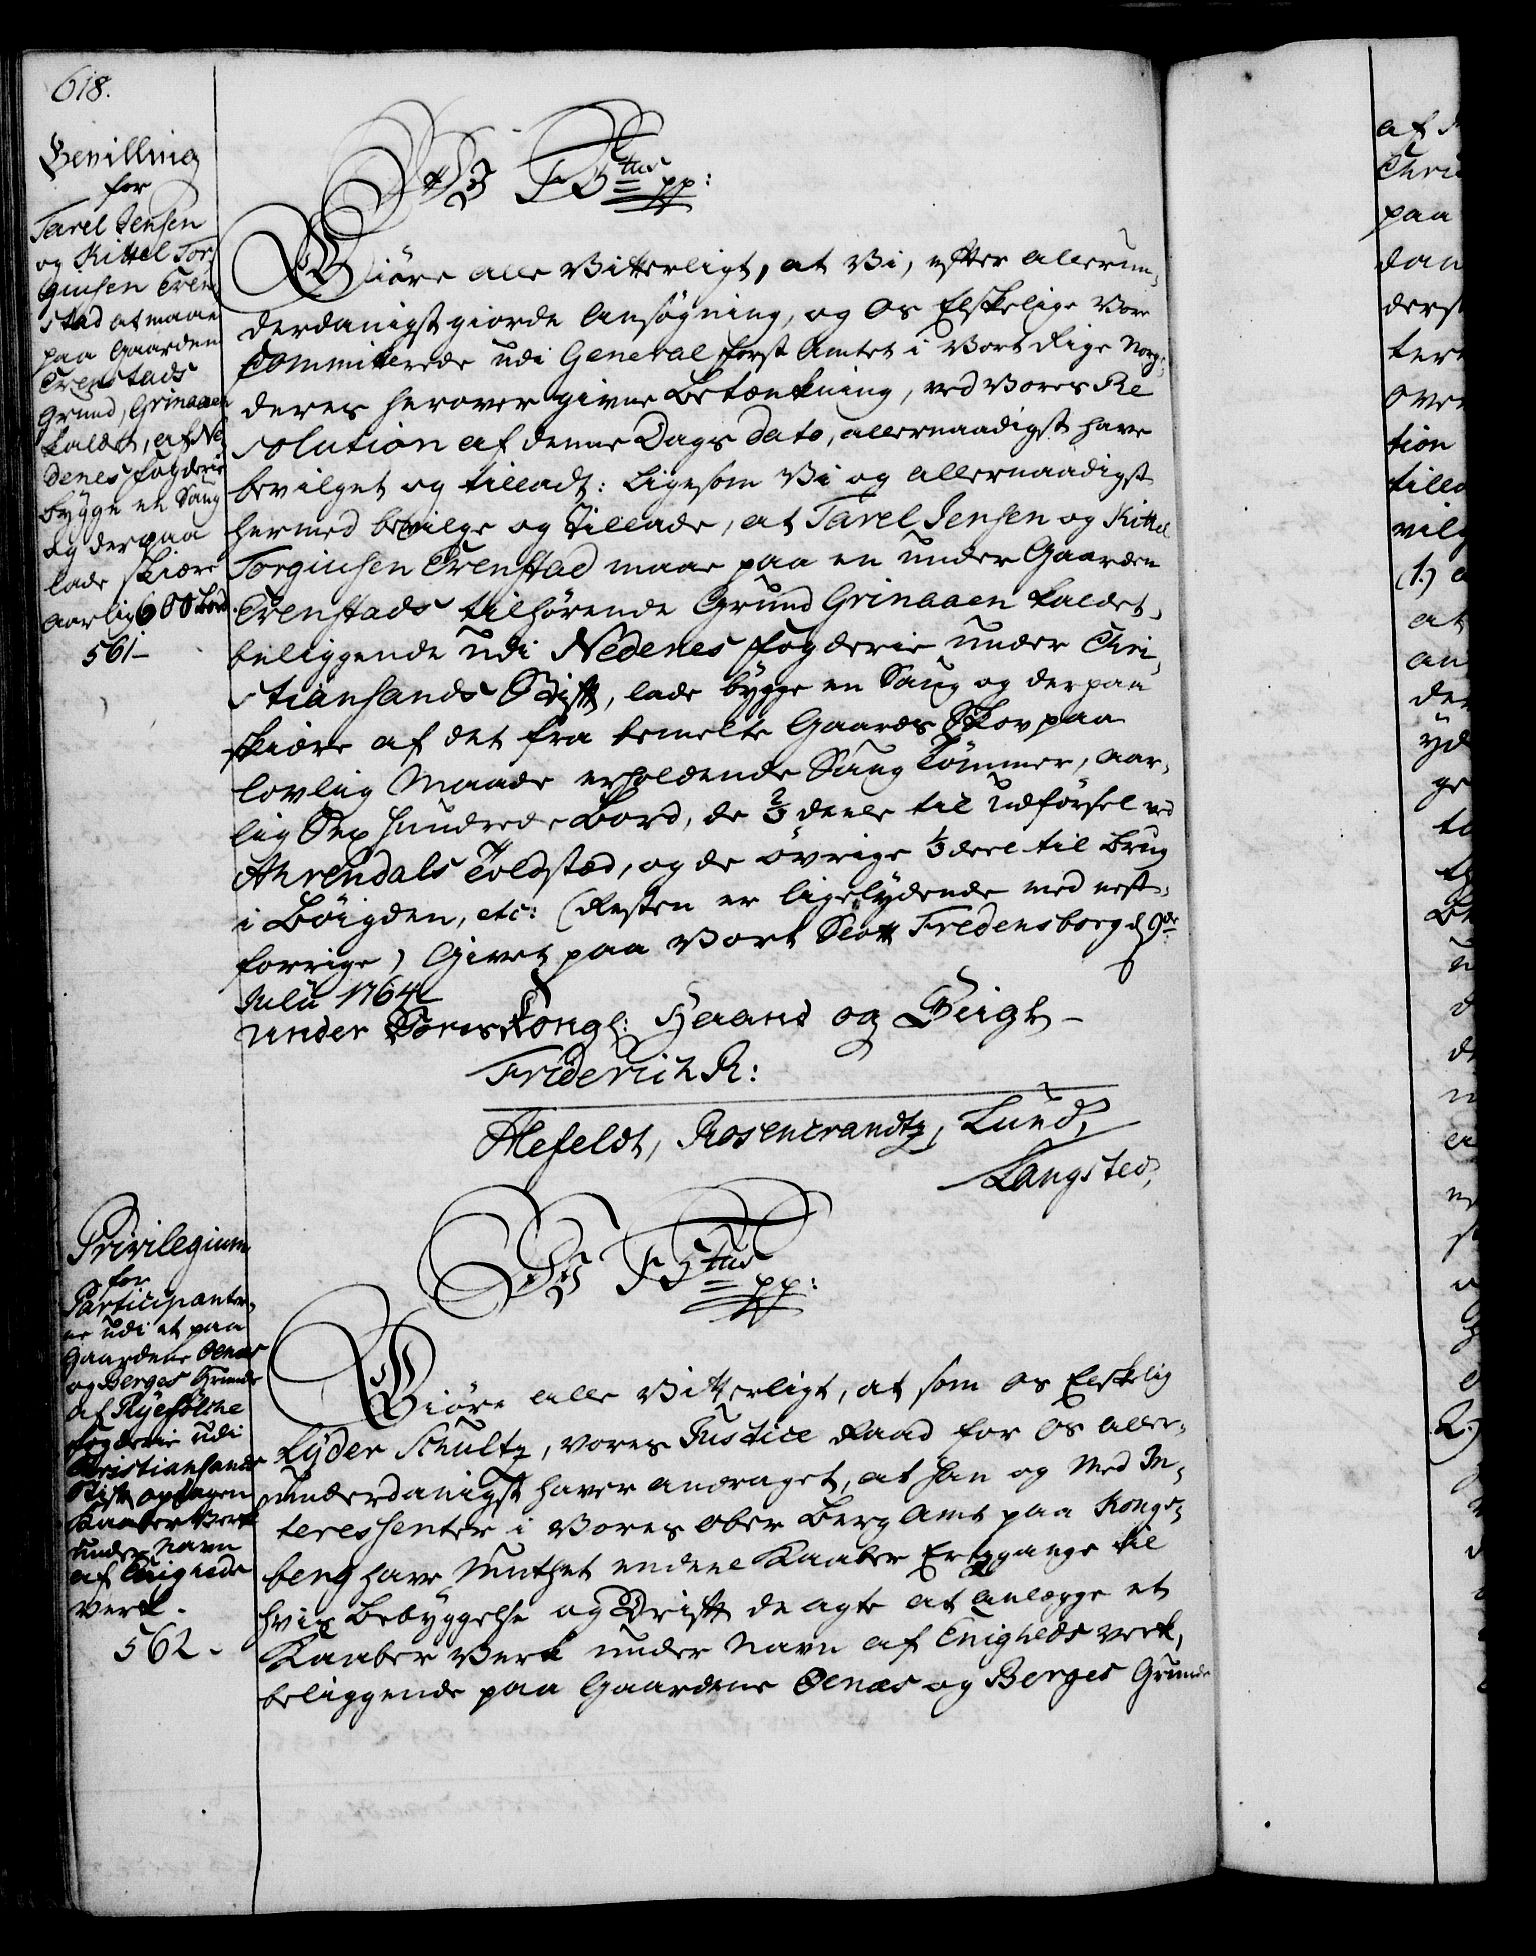 618.
Bevilling
for
Tarel Jensen
og Kittel Tor
giusen Tren
stad at maae
paa Gaarden
Trenstads
Grund, Grinaaen
kaldet, af Ne
denes fogderie
bygge en Saug
og derpaa
lade skiære
aarlig 600 Bord.
561-
Wi F 5tus pp:
Giöre alle Vitterligt, at Vi, efter allerun-
derdanigst giorde Ansøgning, og Os Elskelige Vore
Committerede udi General forst Amtet i Vort Rige Norge
deres herover givne Betænkning, ved Vores Re
solution af denne Dags dato, allernaadigst have
bevilget og tilladt: Ligesom Vi og allernaadigst
hermed bevilge og tillade, at Tarel Jensen og Kittel
Torgiusen Trenstad maae paa en under Gaarden
Trenstads tilhørende Grund Grinaaen kaldet,
beliggende udi Nedenes fogderie under Chri-
stiansands Stift, lade bygge en Saug og derpaa
skiære af det fra bemelte Gaards Skov paa
lovlig Maade erholdende Saug Tömmer, aar-
lig Sex hundrede Bord, de 2/3 deele til Udförsel ved
Ahrendals Toldsted, og de övrige 1/3 deel til Brug
i Böigden, etc: (Resten er ligelydende med nest-
forrige) Givet paa Vort Slott Fredensborg d 9de
Julii 1764
Under Vores Kongl: Haand og Seigl -
Friderich R:
Ahlefeldt, Rosencrandtz, Lund,
Langsted,
Privilegium
for
Participanter-
ne udi et paa
Gaardene Oenæs
og Berges Grunde
af Ryefölske
fogderie udi
Christiansands
Stift optagen
Kaaber Verk
under Navn
af Enigheds
Verk.
562-
Wi F 5tus pp:
Giöre alle Vitterligt, at som Os Elskelig
Lyder Schultz, Vores Justice Raad for Os aller-
underdanigst haver andraget, at han og Med In-
teressenter i Vores Ober Berg Amt paa Kongs-
berg have Muthet endeel Kaaber Ertzgange til
hvis Bebyggelse og Drift de agte at anlægge et
Kaaber Verk under Navn af Enigheds Verk,
beliggende paa Gaardene Oenæs og Berges Grunde